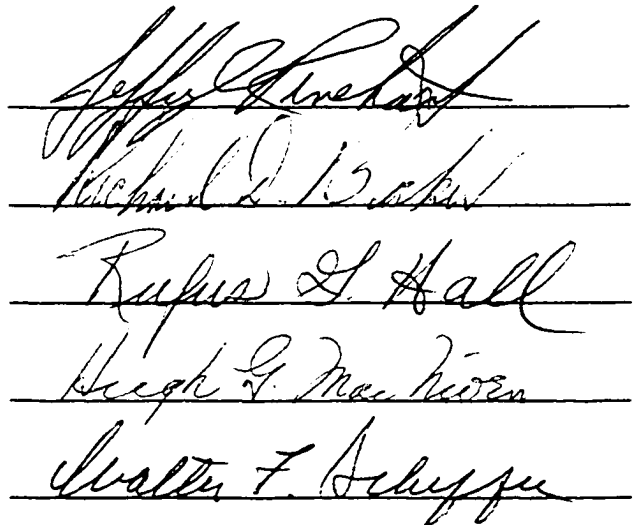 Jeffrey Rinehart
Richard D. Baker
Rufus G. Hall
Hugh G. MacNiven
Walter F. Scheffer